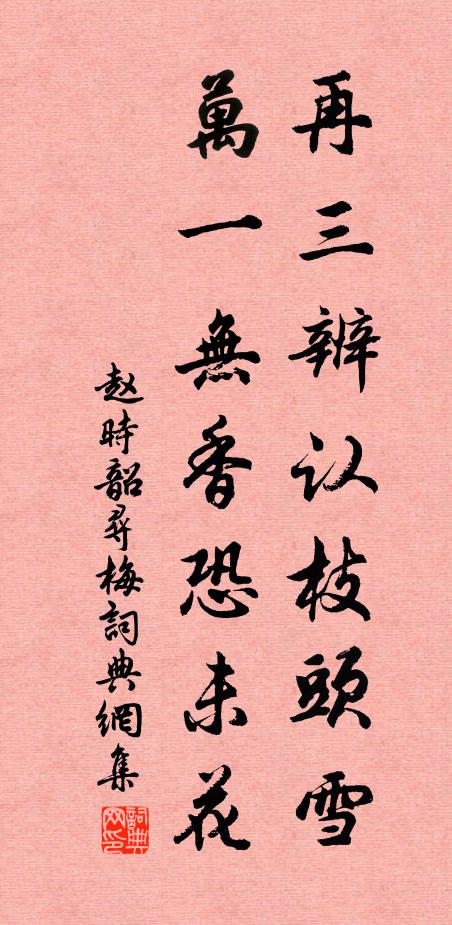 再三辨认枝頭雪
萬一無香恐未花
赵時韶尋梅詞典網集
詞典网印